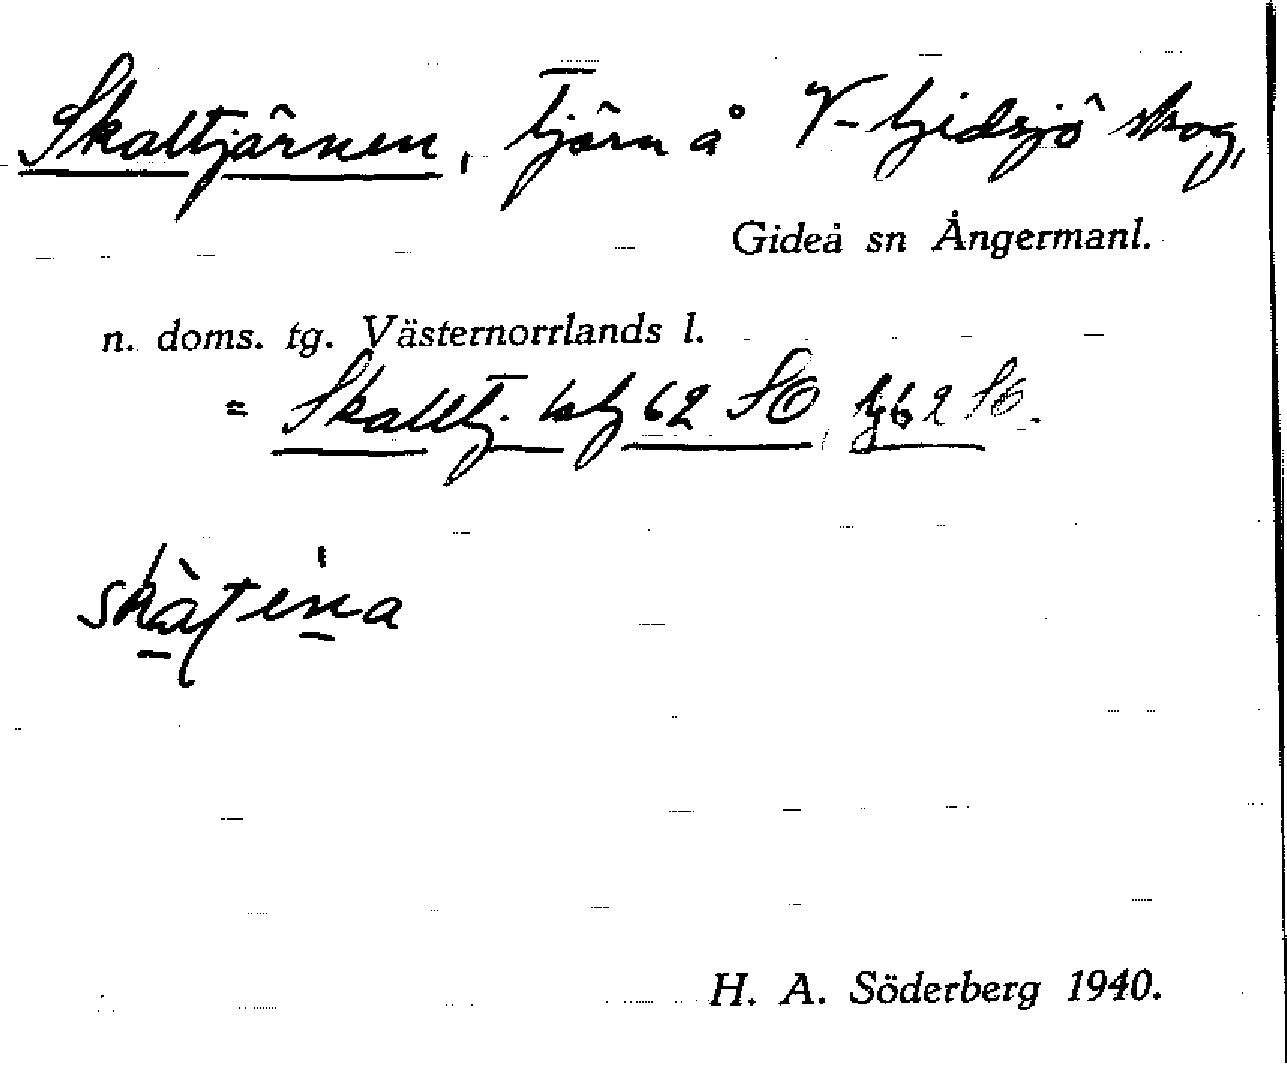 Skaltjärnen, tjärn å V-Gidsjö skog,
Gideå sn Ångermanl.
n. doms. tg. Västernorrlands l.
= Skalltj. 62 SO 62 SO.
H. A. Söderberg 1940.